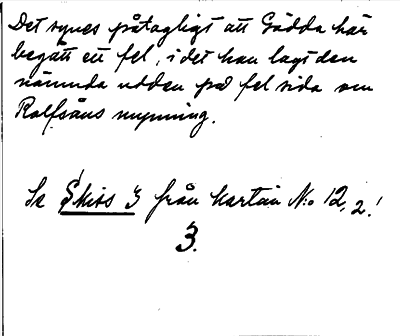 Det synes påtagligt att Gädda här
begått ett fel, i det han lagt den
nämnda udden på fel sida om
Rolfsåns mynning.
Se Skiss 3 från kartan No 12,2!
3.